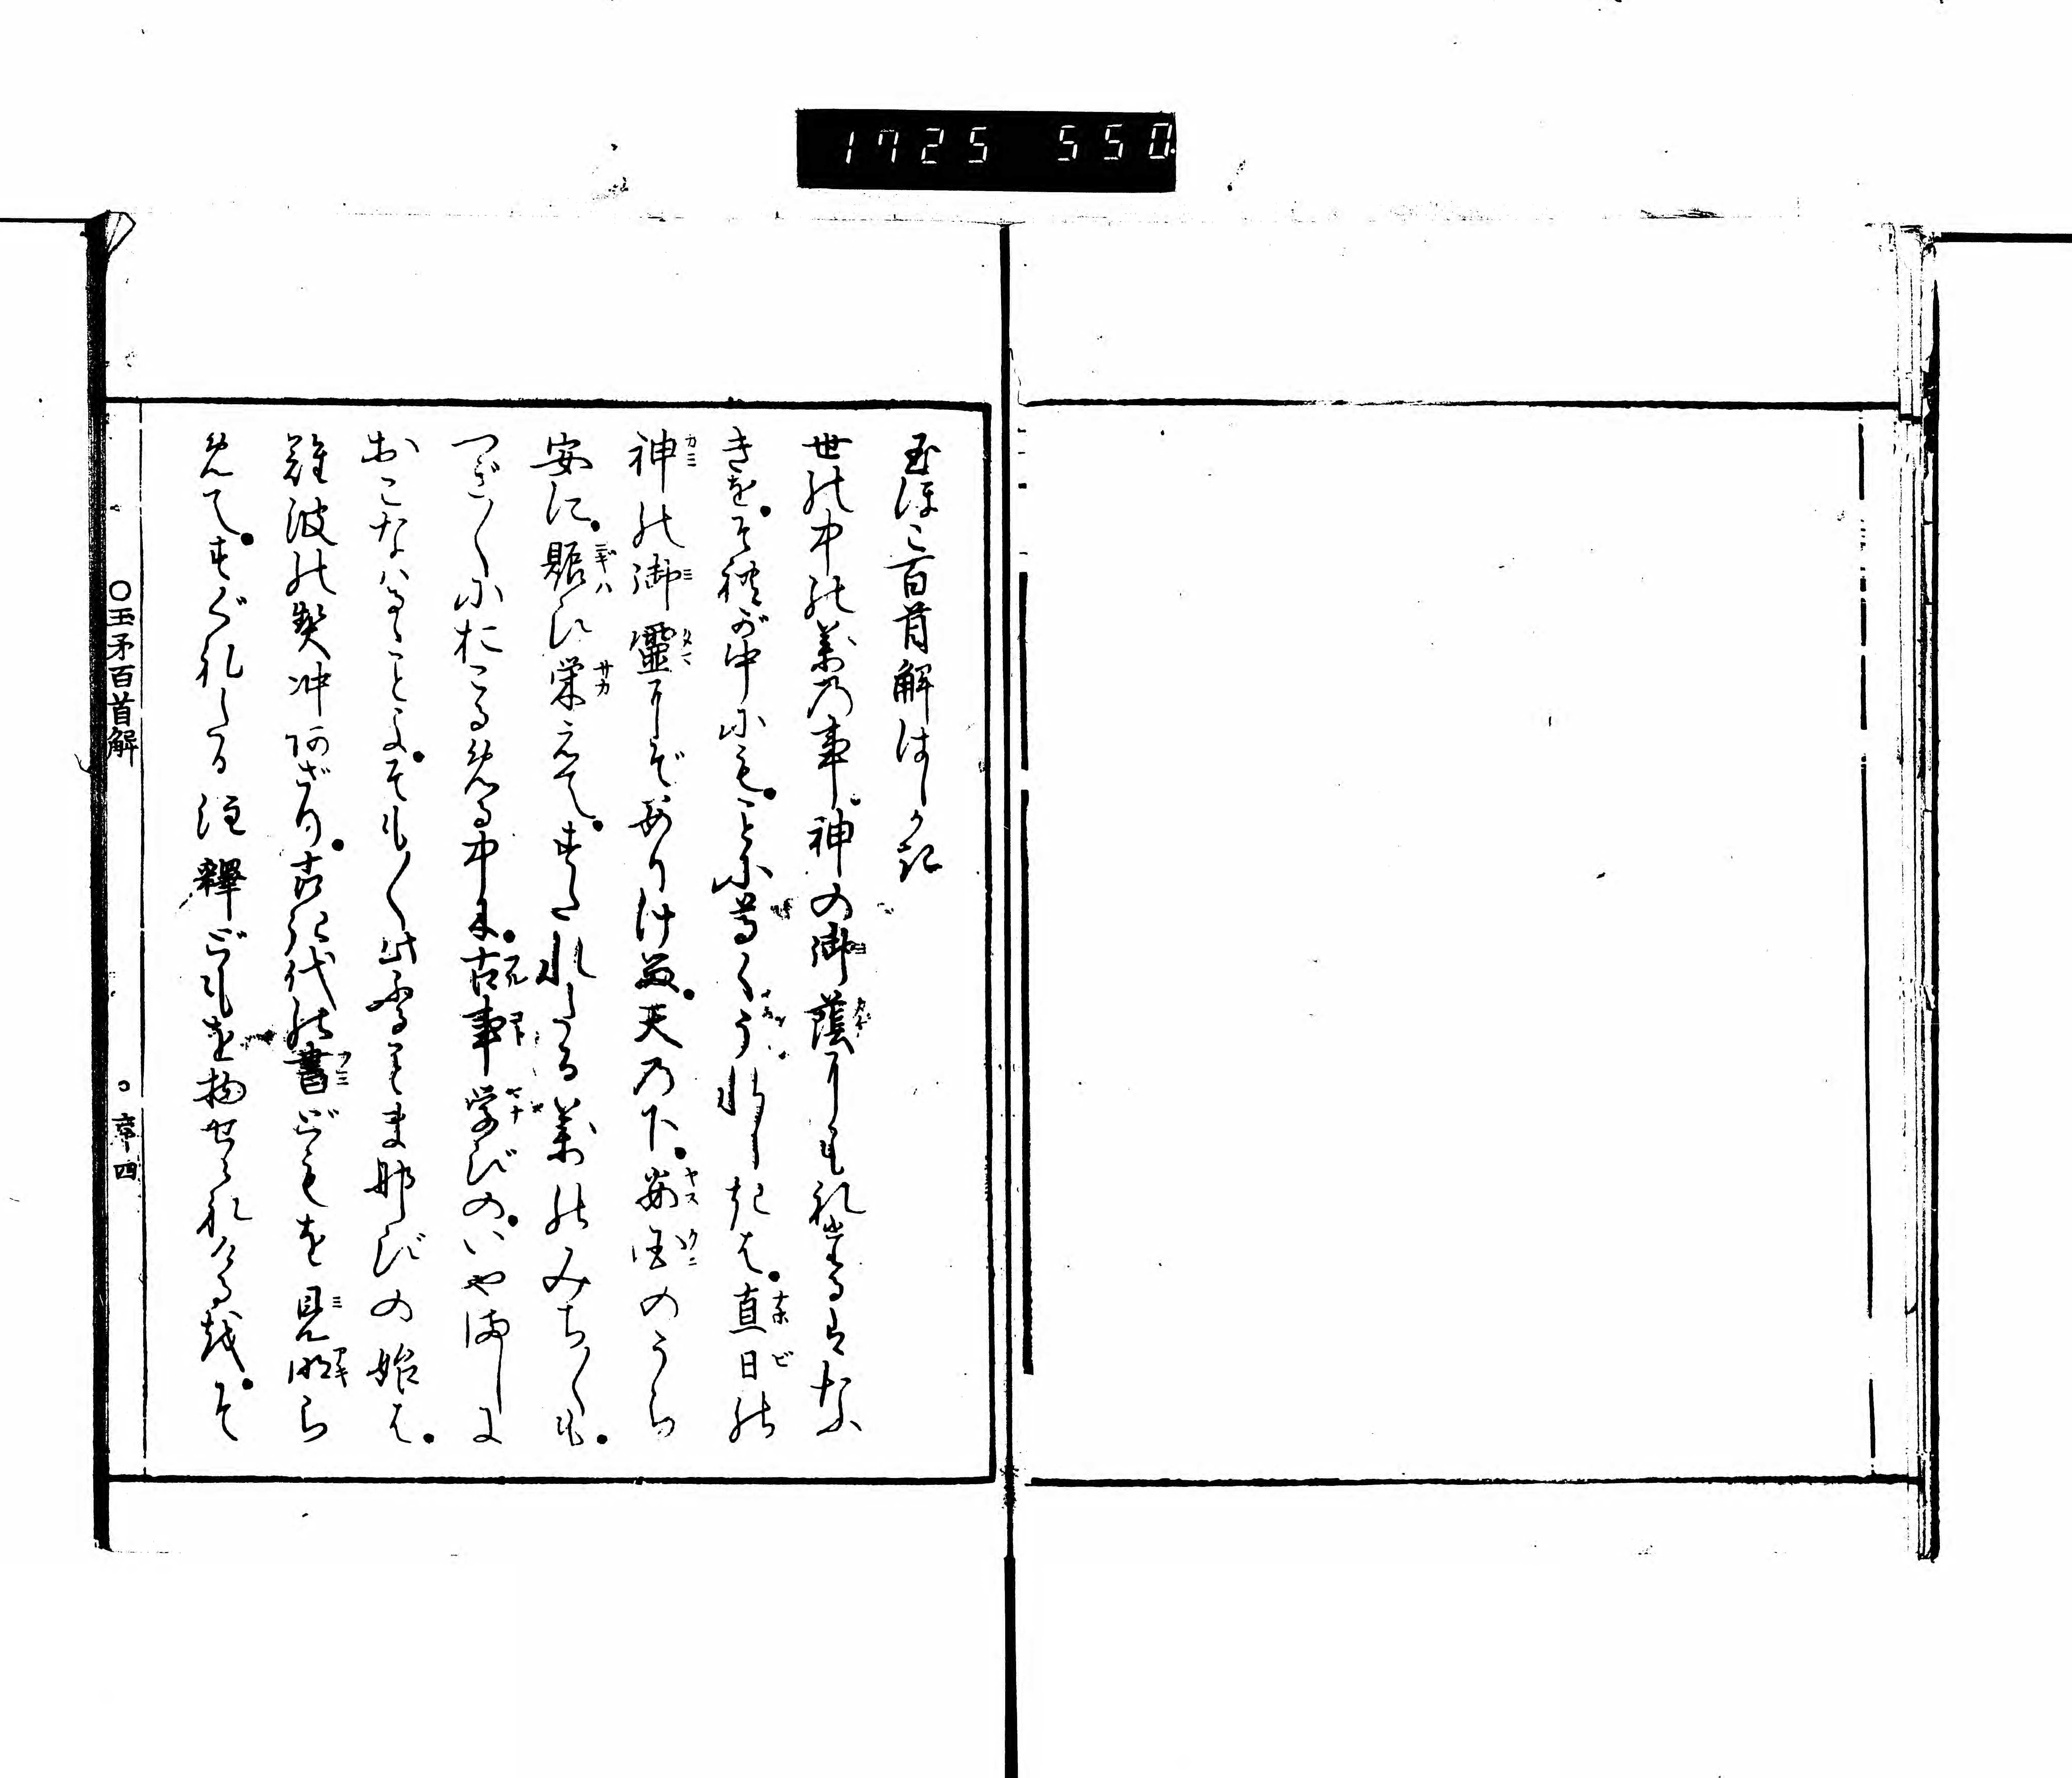 1725 550
玉ほこ百首解はしがき
世の中の万の事。神の御蔭にもれたるはな
きを。それが中にも。ことに尊くうれしきは。直日の
神の御霊にぞありける。天の下。安国のうら
安に。賑ひ栄えて。すたれたる万のみちみちも。
つぎつぎにおこる中に。古事学びの。いやましに
おこなはるゝことよ。そもそも此ふることまなびの始は。
難波の契冲あざり。古き代の書どもを見明ら
めて。すぐれたる注釋どもを物せられけるを。そ
○玉矛百首解
○序四